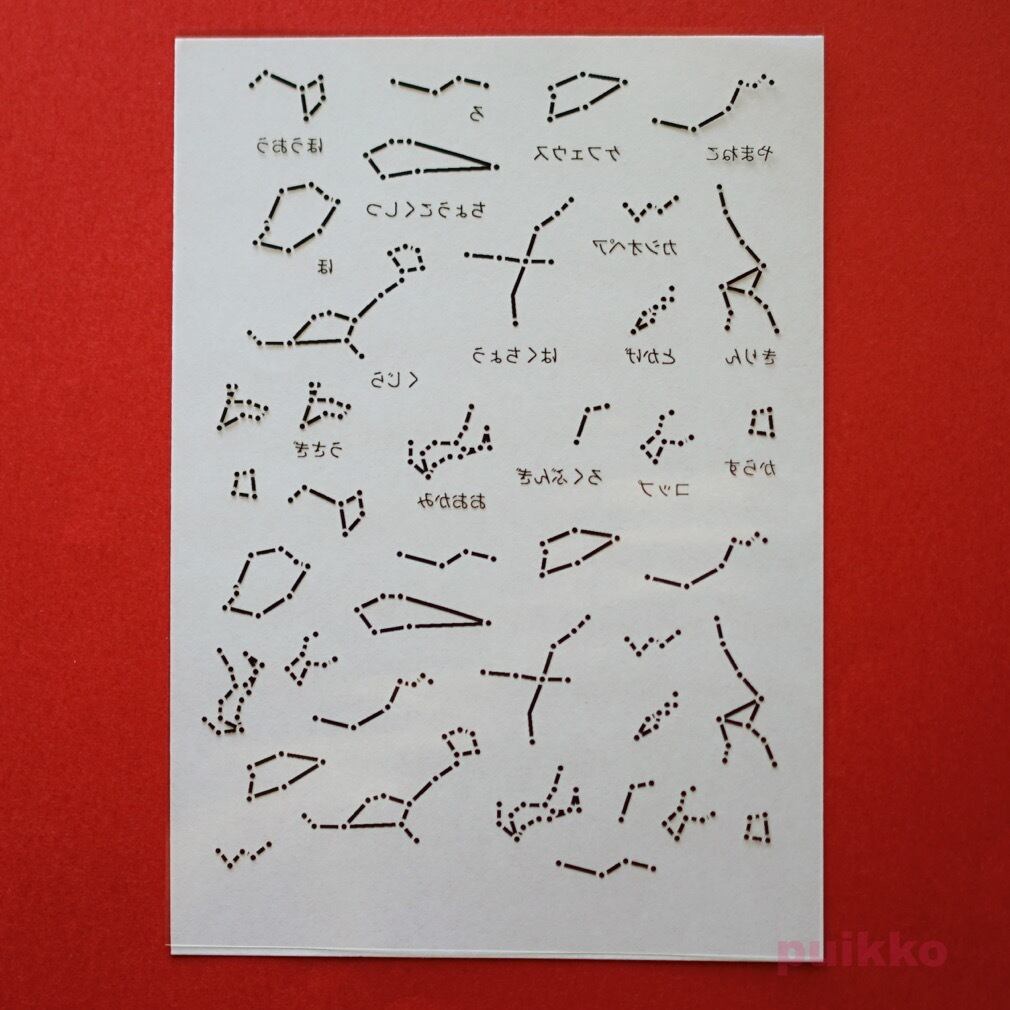 ほうおう
ろ
ケフェウス
やまねこ
ちょうこくしつ
カシオペア
ほ
はくちょう
とかげ
きりん
くじら
うさぎ
おおかみ
ろくぶんぎ
コップ
からす
puikko